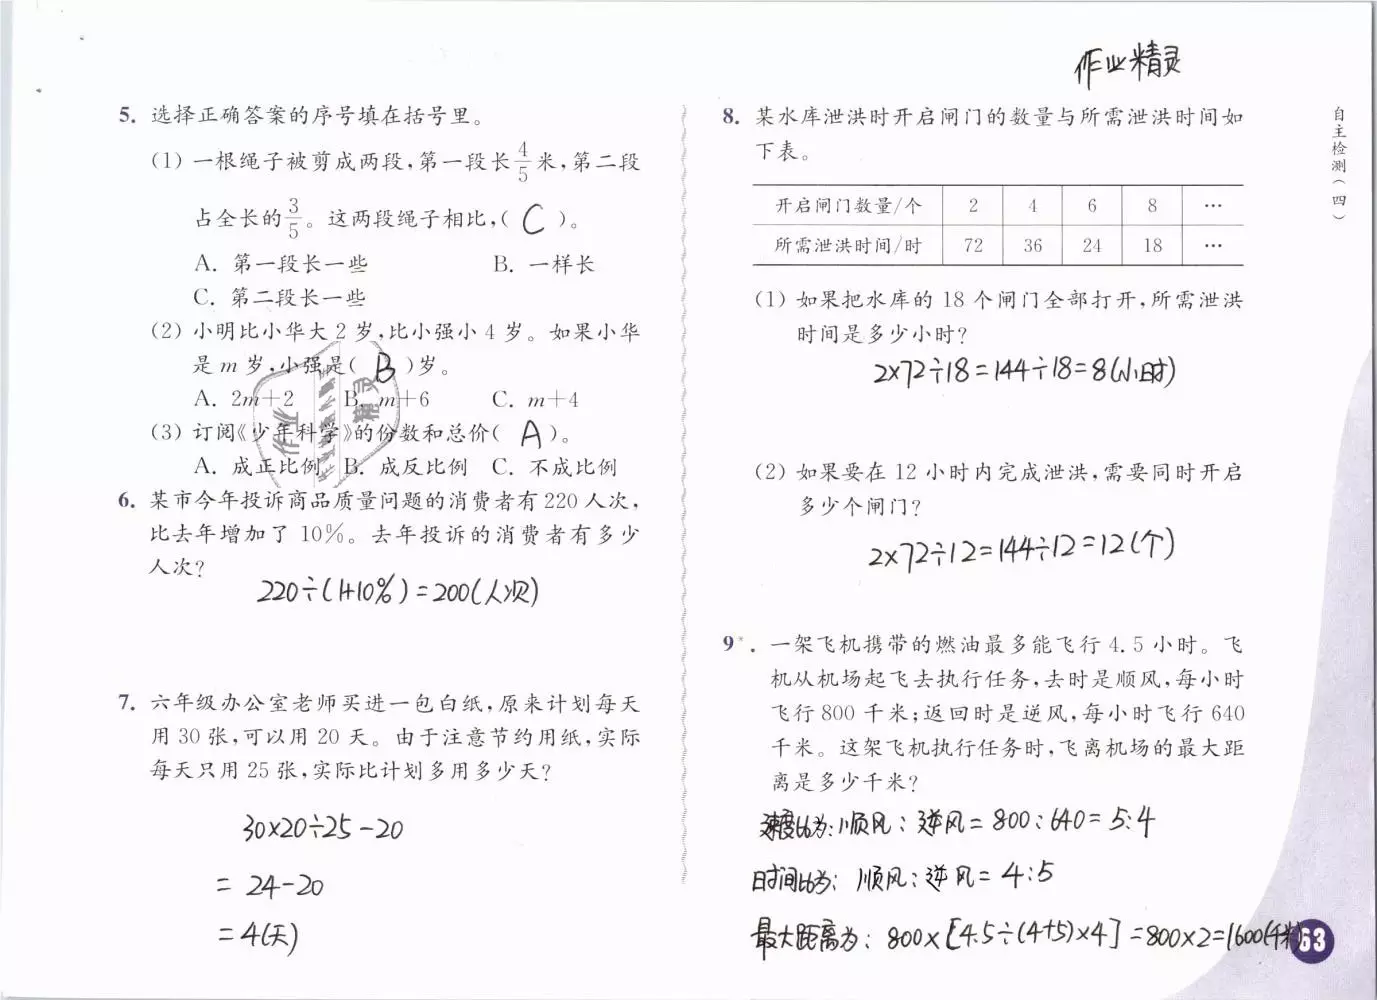 作业精灵
自主检测(四)
5. 选择正确答案的序号填在括号里。
(1) 一根绳子被剪成两段,第一段长4/5米,第二段
占全长的3/5。这两段绳子相比,( C )。
A. 第一段长一些 B. 一样长
C. 第二段长一些
(2) 小明比小华大 2 岁,比小强小 4 岁。如果小华
是 m 岁,小强是( B )岁。
A. 2m+2 B. m+6 C. m+4
(3) 订阅《少年科学》的份数和总价( A )。
A. 成正比例 B. 成反比例 C. 不成比例
作业
精灵
6. 某市今年投诉商品质量问题的消费者有 220 人次,
比去年增加了 10%。去年投诉的消费者有多少
人次?
220÷(1+10%)=200(人次)
7. 六年级办公室老师买进一包白纸,原来计划每天
用 30 张,可以用 20 天。由于注意节约用纸,实际
每天只用 25 张,实际比计划多用多少天?
30×20÷25-20
=24-20
=4(天)
8. 某水库泄洪时开启闸门的数量与所需泄洪时间如
下表。
开启闸门数量/个 2 4 6 8 …
所需泄洪时间/时 72 36 24 18 …
(1) 如果把水库的 18 个闸门全部打开,所需泄洪
时间是多少小时?
2×72÷18=144÷18=8(小时)
(2) 如果要在 12 小时内完成泄洪,需要同时开启
多少个闸门?
2×72÷12=144÷12=12(个)
9*. 一架飞机携带的燃油最多能飞行 4.5 小时。飞
机从机场起飞去执行任务,去时是顺风,每小时
飞行 800 千米;返回时是逆风,每小时飞行 640
千米。这架飞机执行任务时,飞离机场的最大距
离是多少千米?
速度比为:顺风:逆风=800:640=5:4
时间比为:顺风:逆风=4:5
最大距离为:800×[4.5÷(4+5)×4]=800×2=1600(千米)
63